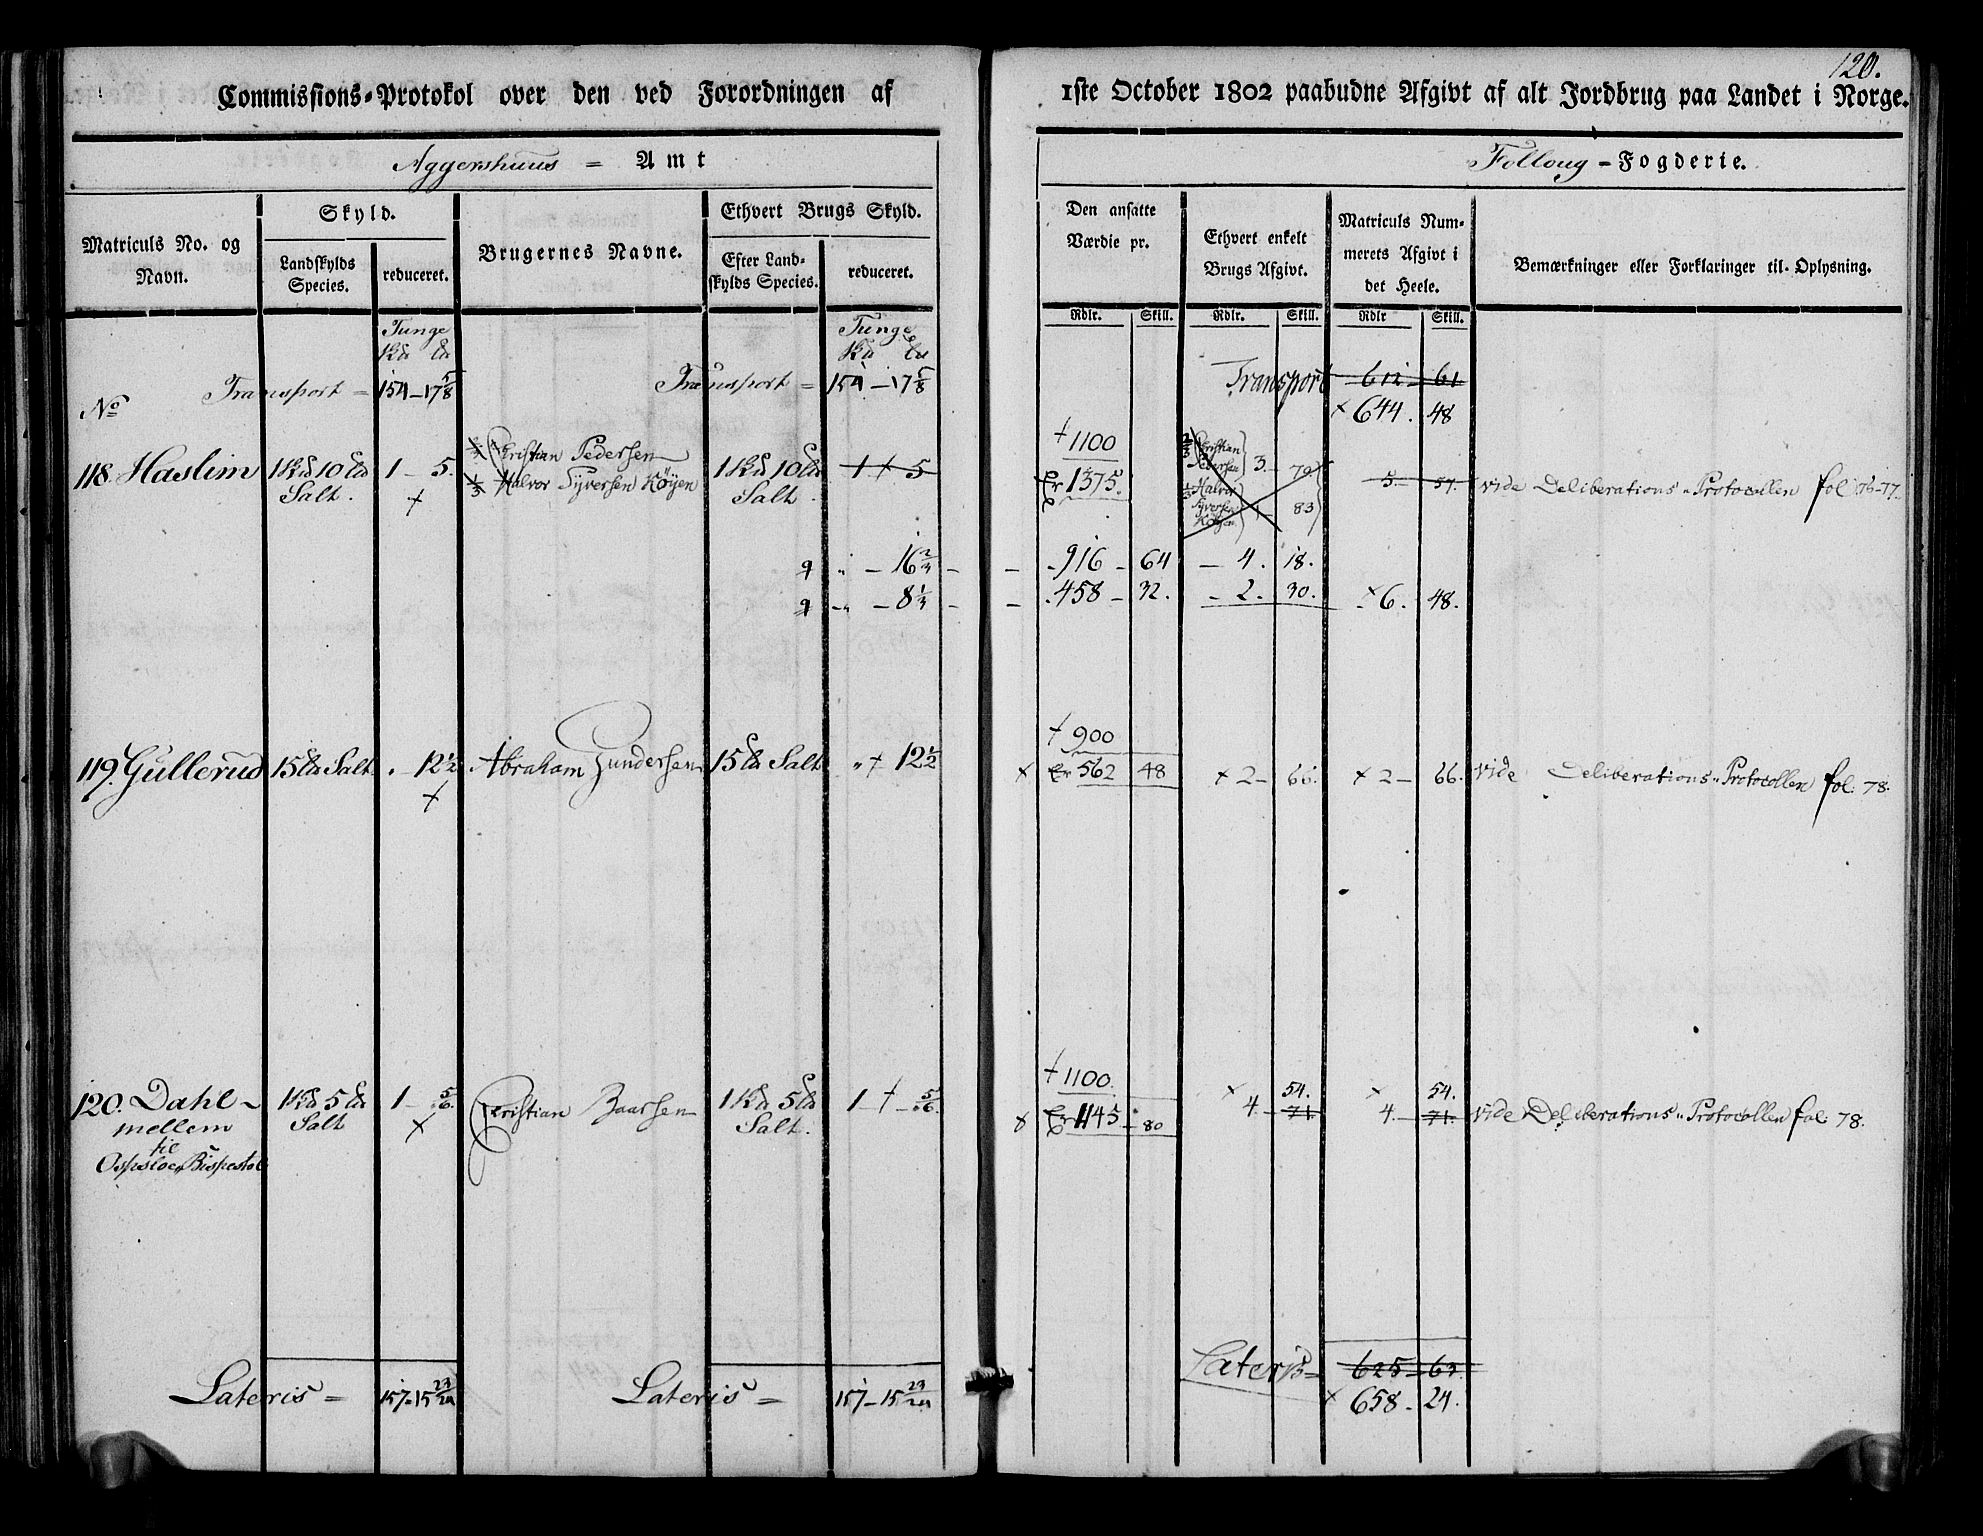 120.
Commissions-Protokol over den ved Forordningen af 1ste October 1802 paabudne Afgivt af alt Jordbrug paa Landet i Norge.
Aggershuus = Amt
Folloug - Fogderie.
Matriculs No. og Navn.
Skyld.
Landskylds Species.
reduceret.
Brugernes Navne.
Ethvert Brugs Skyld.
Efter Landskylds Species.
reduceret.
Den ansatte Værdie pr.
Ethvert enkelt Brugs Afgivt.
Matriculs Nummerets Afgivt i det Heele.
Bemærkninger eller Forklaringer til Oplysning.
Rdlr. Skill. Rdlr. Skill. Rdlr Skill.
Tunge Tunge
Transport = 154 - 17 5/8 Transport = 154 - 17 5/8 Transport 612 - 61
No × 644. 48
+ 1100
118. Haslim 1 10 Salt. 1 - 5. 2/3 Christian Pedersen 1 10 Salt. 1 + 5 1375. 2/3 Christian Pedersen 3 - 79 5 - 57. vide Deliberations-Protocollen fol 76-77.
1/3 Halvor Syversen Köyen 1/3 Halvor Syversen Köyen 1 - 83
" - 16 2/3 - 916 - 64 - 4. 18.
" - 8 1/3 - 458 - 32. - 2. 30. × 6. 48.
+ 900
119. Gullerud 15 Salt. " 12 1/2 Abraham Gundersen 15 Salt " + 12 1/2 × 562 48 × 2 - 66. × 2 - 66. vide Deliberations-Protocollen fol. 78.
+ 1100.
120. Dahl - 1 5 Salt 1 - 5/6. Christian Baarsen 1 5 Salt. 1 + 5/6. 1145 - 80 × 4 - 71. 54. × 4 - 71. 54. vide Deliberations-Protocollen fol: 78.
mellem
til
Opsloe Bispestol
Lateris = 157 - 15 23/24 Lateris = 157 - 15 23/24 Lateris = 625 - 63.
× 658 - 24.